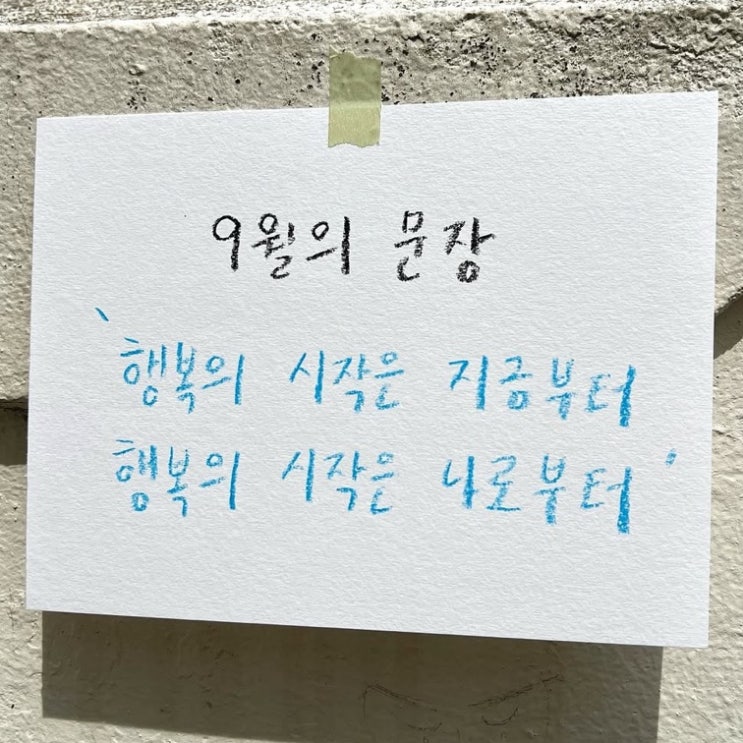 9월의 문장
'행복의 시작은 지금부터
행복의 시작은 나로부터'